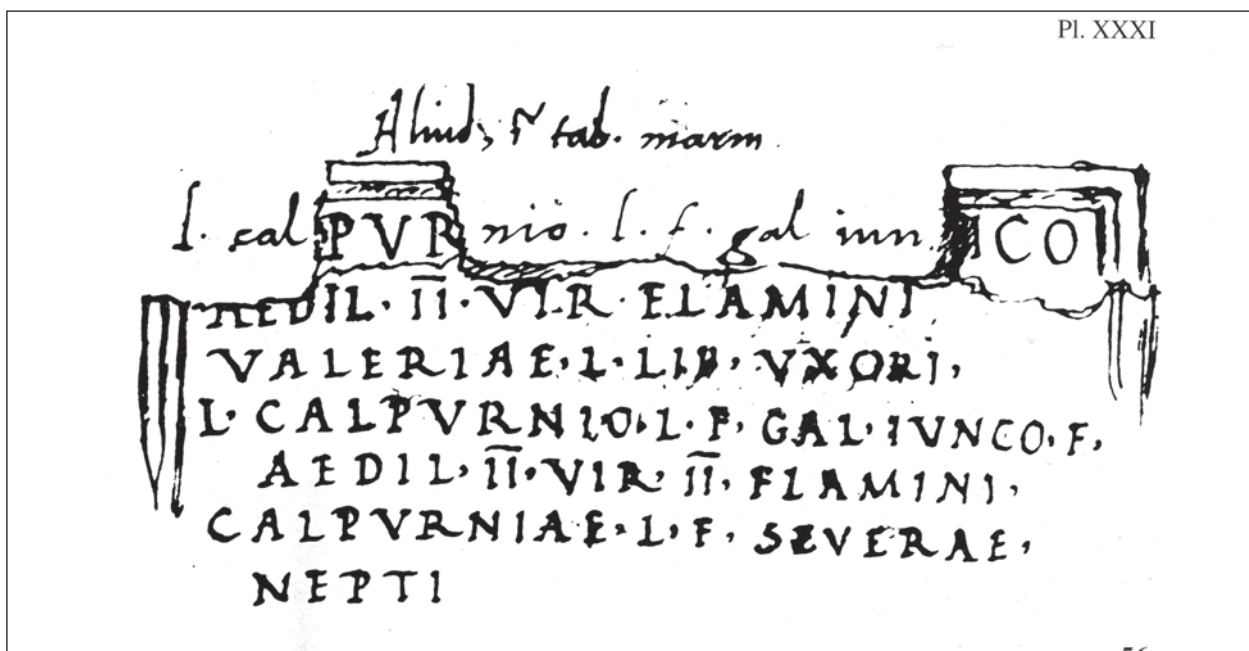 Pl. XXXI
Aliud, i tab. marm.
l. cal PVR nio. l. f. gal iun. CO
AEDIL · II · VIR · FLAMINI
VALERIAE · L · LIB · VXORI,
L · CALPVRNIO · L · F · GAL · IVNCO · F,
AEDIL, II · VIR · II · FLAMINI,
CALPVRNIAE · L · F · SEVERAE,
NEPTI